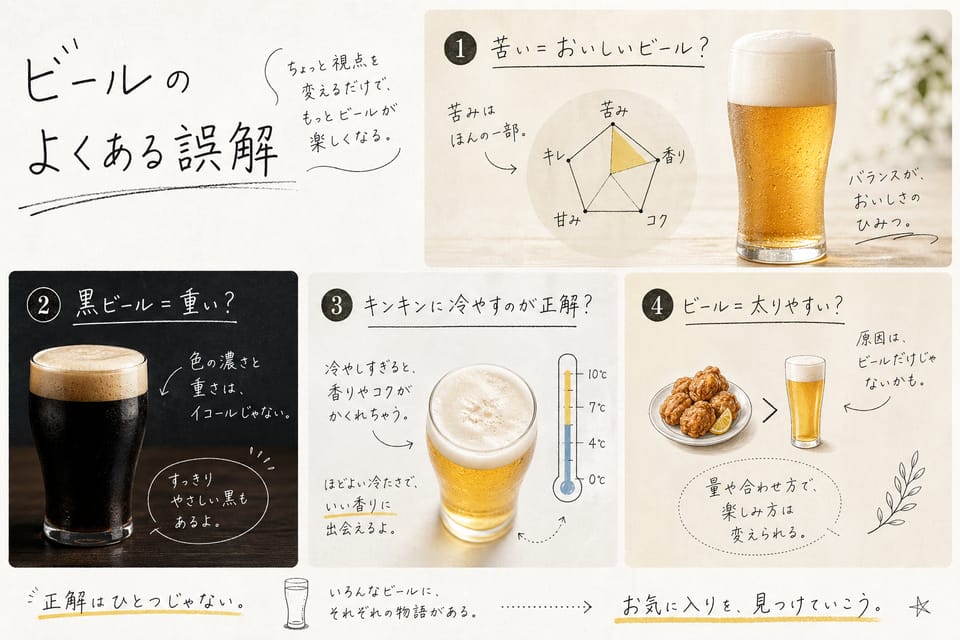 ビールの
よくある誤解
ちょっと視点を
変えるだけで、
もっとビールが
楽しくなる。
1 苦い=おいしいビール?
苦みは
ほんの一部。
苦み
キレ
香り
甘み
コク
バランスが、
おいしさの
ひみつ。
2 黒ビール=重い?
色の濃さと
重さは、
イコールじゃない。
すっきり
やさしい黒も
あるよ。
3 キンキンに冷やすのが正解?
冷やしすぎると、
香りやコクが
かくれちゃう。
10℃
7℃
4℃
0℃
ほどよい冷たさで、
いい香りに
出会えるよ。
4 ビール=太りやすい?
原因は、
ビールだけじゃ
ないかも。
>
量や合わせ方で、
楽しみ方は
変えられる。
正解はひとつじゃない。
いろんなビールに、
それぞれの物語がある。
お気に入りを、見つけていこう。